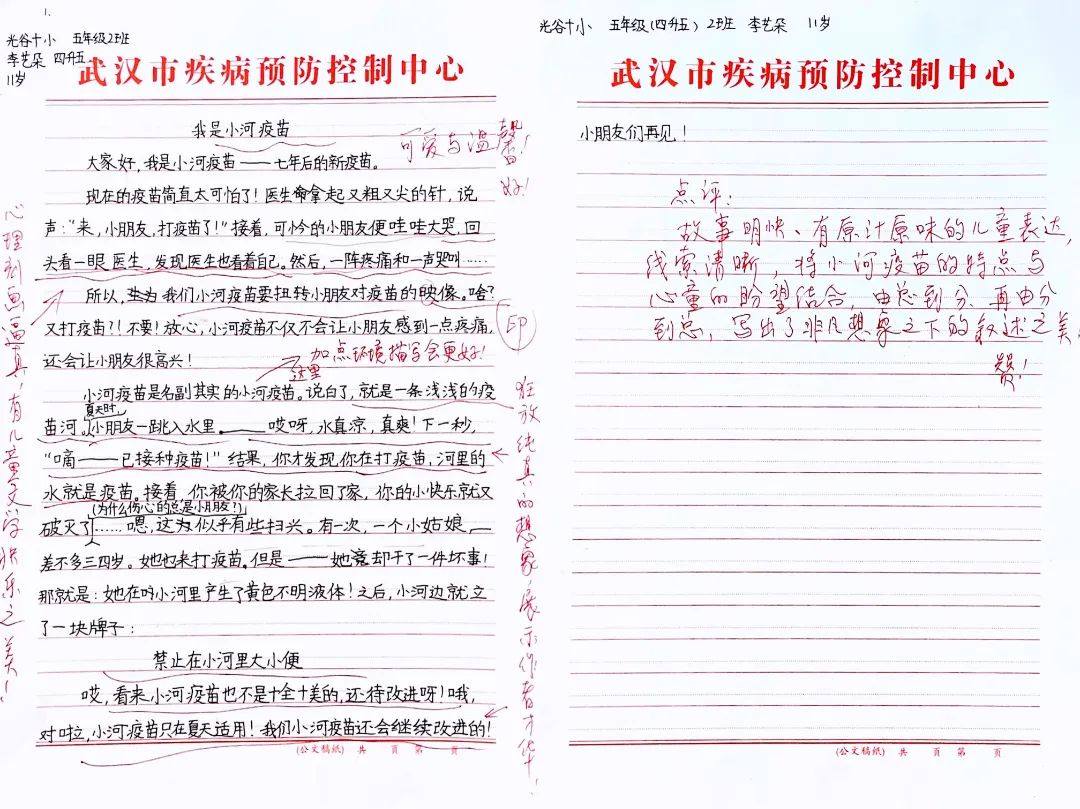 1.
光谷十小 五年级2班
李艺朵 四升五
11岁
武汉市疾病预防控制中心
我是小河疫苗
可爱与温馨!
好!
大家好,我是小河疫苗——七年后的新疫苗。
现在的疫苗简直太可怕了!医生拿起又粗又尖的针,说
声:“来,小朋友,打疫苗了!”接着,可怜的小朋友便哇哇大哭,回
头看一眼医生,发现医生也看着自己。然后,一阵疼痛和一声哭叫……
所以,我们小河疫苗要扭转小朋友对疫苗的映像。啥?
又打疫苗?!不要!放心,小河疫苗不仅不会让小朋友感到一点疼痛,
还会让小朋友很高兴!
这里
加点环境描写会更好!
小河疫苗是名副其实的小河疫苗。说白了,就是一条浅浅的疫
夏天时,
苗河。小朋友一跳入水里。——哎呀,水真凉,真爽!下一秒,
“嘀——已接种疫苗!”结果,你才发现,你在打疫苗,河里的
水就是疫苗。接着,你被你的家长拉回了家,你的小快乐就又
(为什么伤心的总是小朋友?)
破灭了……嗯,这为似乎有些扫兴。有一次,一个小姑娘,
差不多三四岁。她也来打疫苗。但是——她竟却干了一件坏事!
那就是:她在小河里产生了黄色不明液体!之后,小河边就立
了一块牌子:
禁止在小河里大小便
哎,看来小河疫苗也不是十全十美的,还待改进呀!哦,
对啦,小河疫苗只在夏天适用!我们小河疫苗还会继续改进的!
(公文稿纸) 共 页 第 页
心理刻画逼真,有儿童文学快乐之美!
狂放纯真的想象,展示作者才华。
光谷十小 五年级(四升五) 2班 李艺朵 11岁
武汉市疾病预防控制中心
小朋友们再见!
点评:
故事明快、有原汁原味的儿童表达,
线索清晰,将小河疫苗的特点与
心童的盼望结合,由总到分,再由分
到总,写出了非凡想象之下的叙述之美
赞!
(公文稿纸) 共 页 第 页